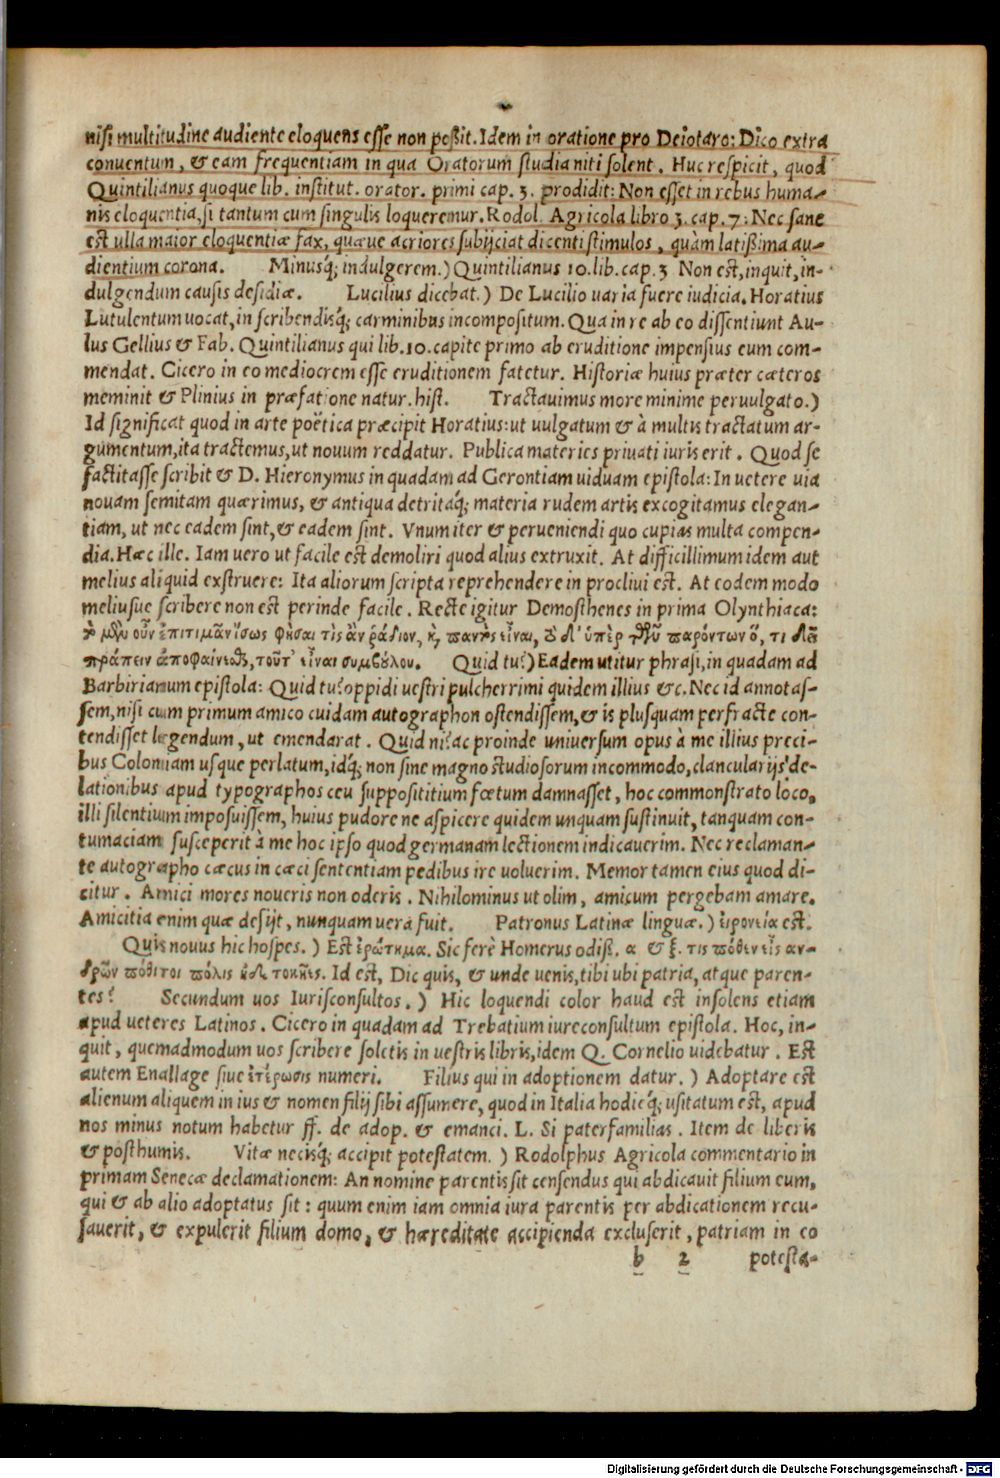 nisi multitudine audiente eloquens esse non poßit. Idem in oratione pro Deiotaro: Dico extra
conuentum, & eam frequentiam in qua Oratorum studia niti solent. Huc respicit, quod
Quintilianus quoque lib. institut. orator. primi cap. 3. prodidit: Non esset in rebus huma-
nis eloquentia, si tantum cum singulis loqueremur. Rodol. Agricola libro 3. cap. 7: Nec sane
est ulla maior eloquentiæ fax, quæue acriores subijciat dicenti stimulos, quàm latißima au-
dientium corona. Minusq́; indulgerem.) Quintilianus 10. lib. cap. 3 Non est, inquit, in-
dulgendum causis desidiæ. Lucilius dicebat.) De Lucilio uaria fuere iudicia. Horatius
Lutulentum uocat, in scribendisq́; carminibus incompositum. Qua in re ab eo dissentiunt Au-
lus Gellius & Fab. Quintilianus qui lib. 10. capite primo ab eruditione impensius eum com-
mendat. Cicero in eo mediocrem esse eruditionem fatetur. Historiæ huius præter cæteros
meminit & Plinius in præfatione natur. hist. Tractauimus more minime peruulgato.)
Id significat quod in arte poëtica præcipit Horatius: ut uulgatum & à multis tractatum ar-
gumentum, ita tractemus, ut nouum reddatur. Publica materies priuati iuris erit. Quod se
factitasse scribit & D. Hieronymus in quadam ad Gerontiam uiduam epistola: In uetere uia
nouam semitam quærimus, & antiqua detritaq́; materia rudem artis excogitamus elegan-
tiam, ut nec eadem sint, & eadem sint. Vnum iter & perueniendi quo cupias multa compen-
dia. Hæc ille. Iam uero ut facile est demoliri quod alius extruxit. At difficillimum idem aut
melius aliquid exstruere: Ita aliorum scripta reprehendere in procliui est. At eodem modo
meliusue scribere non est perinde facile. Recte igitur Demosthenes in prima Olynthiaca:
τὸ μὲν οὖν ἐπιτιμᾶν ἴσως φήσαι τὶς ἂν ῥάδιον, καὶ παντὸς εἶναι, τὸ δ' ὑπὲρ τῶν παρόντων ὅ, τι δεῖ
πράττειν ἀποφαίνεσθαι, τοῦτ' εἶναι συμβούλου. Quid tu?) Eadem utitur phrasi, in quadam ad
Barbirianum epistola: Quid tu? oppidi uestri pulcherrimi quidem illius &c. Nec id annotas-
sem, nisi cum primum amico cuidam autographon ostendissem, & is plusquam perfracte con-
tendisset legendum, ut emendarat. Quid ni? ac proinde uniuersum opus à me illius preci-
bus Coloniam usque perlatum, idq́; non sine magno studiosorum incommodo, clancularijs de-
lationibus apud typographos ceu supposititium fœtum damnasset, hoc commonstrato loco,
illi silentium imposuissem, huius pudore ne aspicere quidem unquam sustinuit, tanquam con-
tumaciam susceperit à me hoc ipso quod germanam lectionem indicauerim. Nec reclaman-
te autographo cæcus in cæci sententiam pedibus ire uoluerim. Memor tamen eius quod di-
citur. Amici mores noueris non oderis. Nihilominus ut olim, amicum pergebam amare.
Amicitia enim quæ desijt, nunquam uera fuit. Patronus Latinæ linguæ.) εἰρονεία est.
Quis nouus hic hospes.) Est ἐρώτημα. Sic ferè Homerus odiß. α & ξ. τις πόθεν εἶς αν-
δρῶν πόθι τοι πόλις ἠδὲ τοκῆες. Id est, Dic quis, & unde uenis, tibi ubi patria, atque paren-
tes? Secundum uos Iurisconsultos.) Hic loquendi color haud est insolens etiam
apud ueteres Latinos. Cicero in quadam ad Trebatium iureconsultum epistola. Hoc, in-
quit, quemadmodum uos scribere soletis in uestris libris, idem Q. Cornelio uidebatur. Est
autem Enallage siue ἑτέρωσις numeri. Filius qui in adoptionem datur.) Adoptare est
alienum aliquem in ius & nomen filij sibi assumere, quod in Italia hodieq́; usitatum est, apud
nos minus notum habetur ff. de adop. & emanci. L. Si paterfamilias. Item de liberis
& posthumis. Vitæ necisq́; accipit potestatem.) Rodolphus Agricola commentario in
primam Senecæ declamationem: An nomine parentis sit censendus qui abdicauit filium eum,
qui & ab alio adoptatus sit: quum enim iam omnia iura parentis per abdicationem recu-
sauerit, & expulerit filium domo, & hæreditate accipienda excluserit, patriam in eo
b 2 potesta-
Digitalisierung gefördert durch die Deutsche Forschungsgemeinschaft - DFG